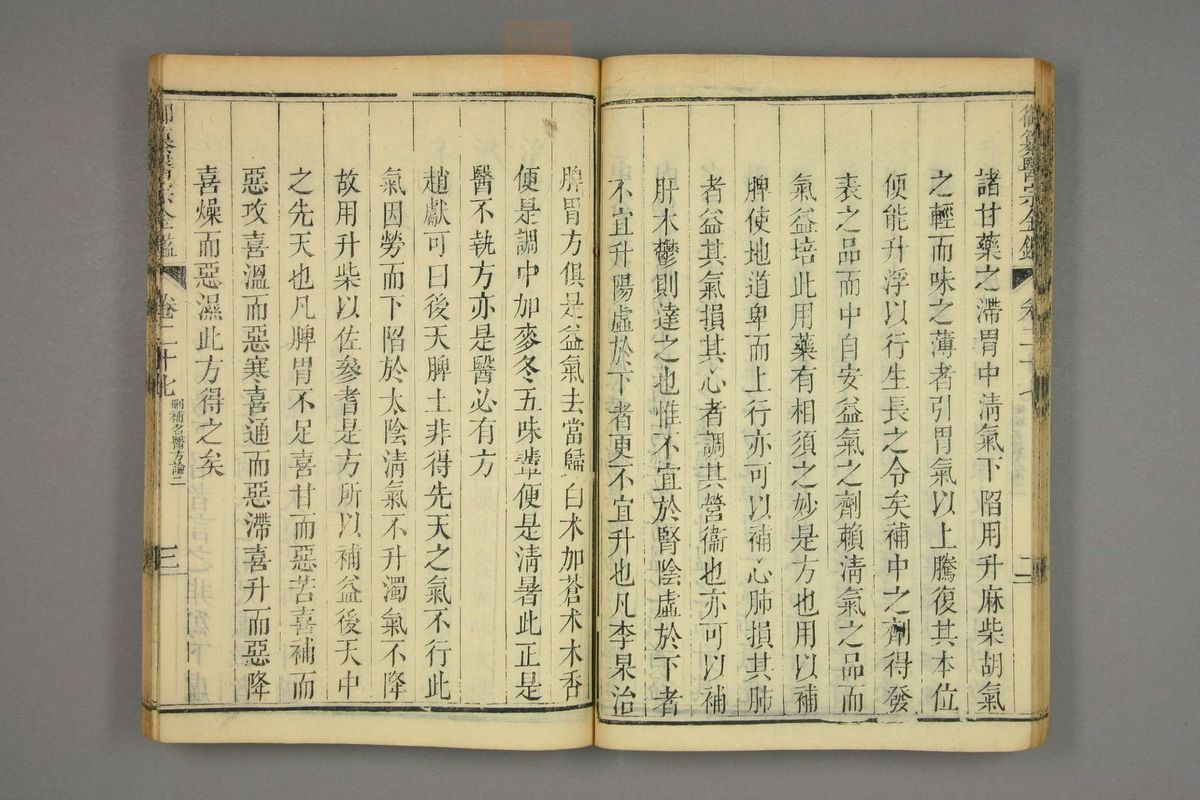 諸甘藥之滯胃中淸氣下陷用升麻柴胡氣
之輕而味之薄者引胃氣以上騰復其本位
便能升浮以行生長之令矣補中之劑得發
表之品而中自安益氣之劑賴淸氣之品而
氣益培此用藥有相須之妙是方也用以補
脾使地道卑而上行亦可以補心肺損其肺
者益其氣損其心者調其營衞也亦可以補
肝木鬱則達之也惟不宜於腎陰虛於下者
不宜升陽虛於下者更不宜升也凡李杲治
脾胃方俱是益氣去當歸白朮加蒼朮木香
便是調中加麥冬五味輩便是淸暑此正是
醫不執方亦是醫必有方
趙獻可曰後天脾土非得先天之氣不行此
氣因勞而下陷於太陰淸氣不升濁氣不降
故用升柴以佐參耆是方所以補益後天中
之先天也凡脾胃不足喜甘而惡苦喜補而
惡攻喜溫而惡寒喜通而惡滯喜升而惡降
喜燥而惡濕此方得之矣
御纂醫宗金鑑
卷二十七
刪補名醫方論二
三